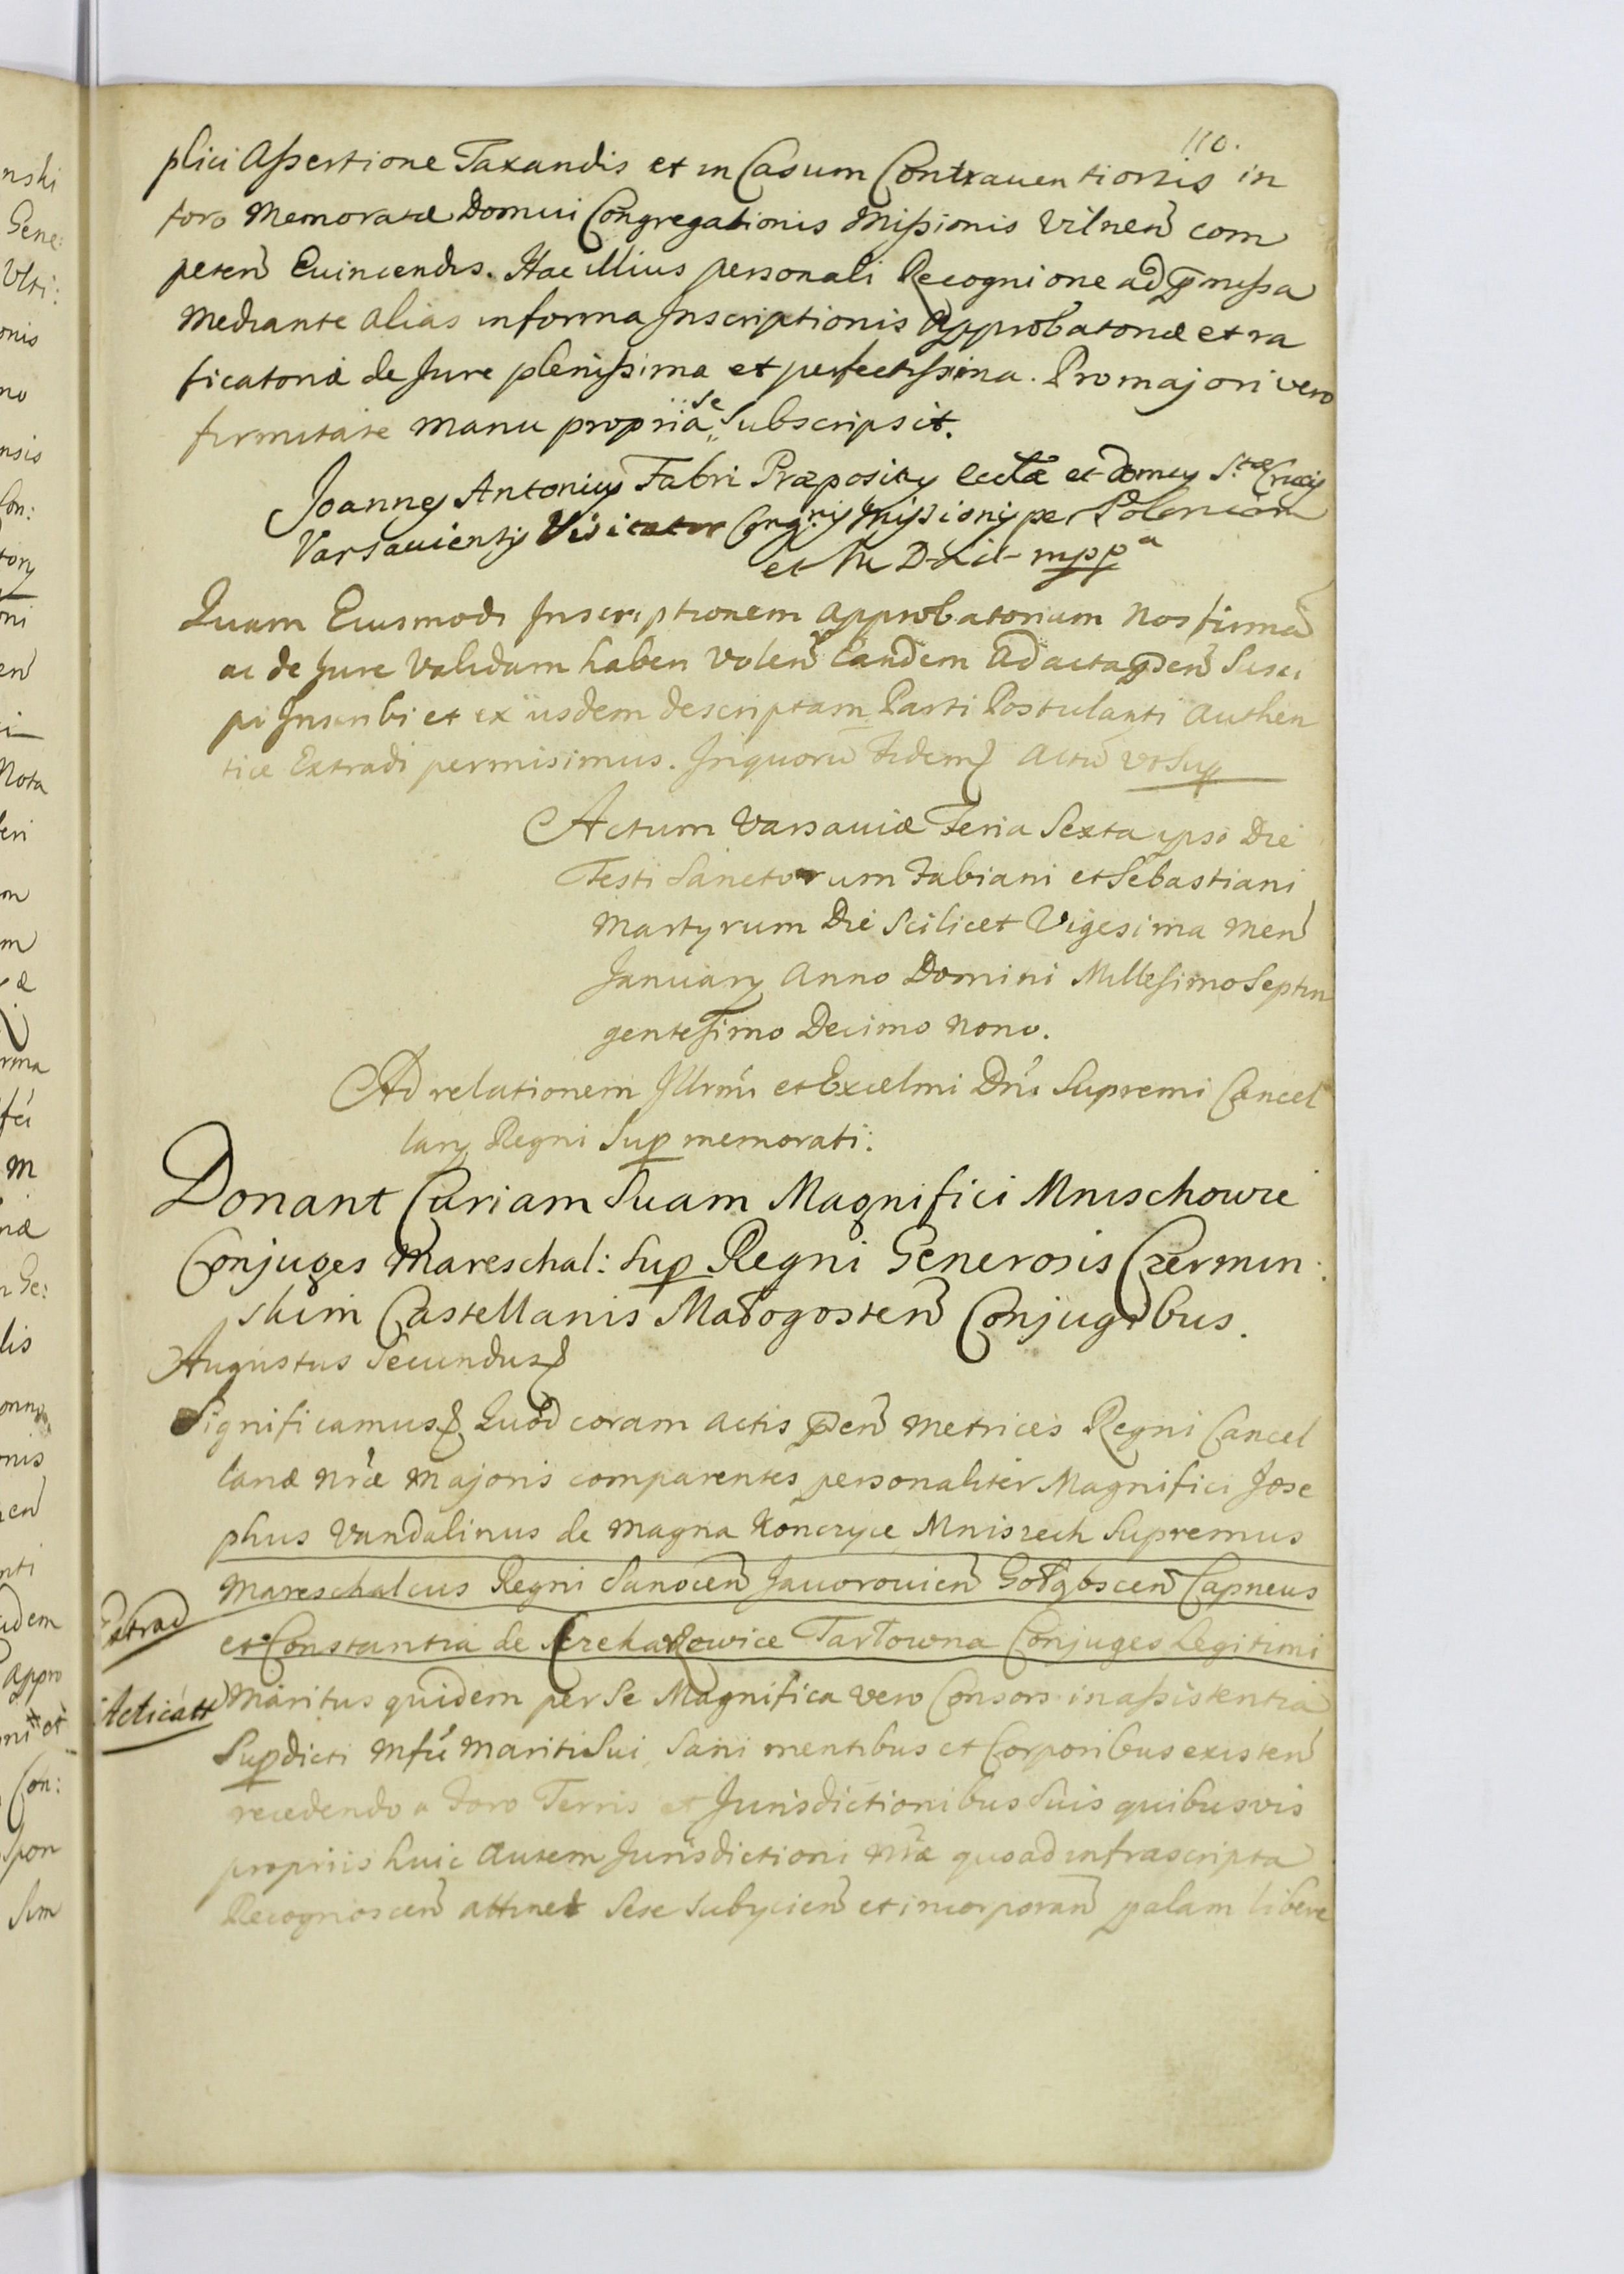 110.
plici Assertione Taxandis et in Casum Contrauentionis in
foro Memoratæ Domui Congregationis Missionis Vilneñ com
peteñ Euincendis. Hac illius personali Recognione ad p̱missa
Mediante alias in forma Inscriptionis Approbatoriæ et ra
ficatoriæ de Jure plenissima et perfectissima. Pro majori vero
firmitate manu propria se Subscripsit.
Joannes Antonius Fabri Præpositus Ecclæ et domus S.tæ Crucis
Varsauiensis Visitator Congnis Missionis per Poloniam
et M D Lit mppa
Quam Eiusmodi Inscriptionem Approbatoriam Nos firmã
ac de Jure Validam haberi Voleñ Eandem Ad acta p̱señ Susci
pi Inscribi et ex iisdem descriptam Parti Postulanti Authen
tice Extradi permisimus. In quorũ Fidem Actũ vt Sup
Actum Varsauiæ Feria Sexta ipso Die
Festi Sanctorum Fabiani et Sebastiani
Martyrum Die Scilicet Vigesima Meñ
January Anno Domini Millesimo Septin
gentesimo Decimo Nono.
Ad relationem Illrmi et Excelmi Dñi Supremi Cancel
lary Regni Sup memorati.
Donant Curiam Suam Magnifici Mnischowie
Conjuges Mareschal: Sup Regni Generosis Czermin:
skim Castellanis Małogosteñ Conjugibus.
Augustus Secundus
Significamus Quod coram actis p̱señ Metrices Regni Cancel
lariæ nræ Majoris comparentes personaliter Magnifici Jose
phus Vandalinus de Magna Konczyce Mniszech Supremus
Mareschalcus Regni Sanoceñ Jaworouieñ Gołąbsceñ Capneus
Extrad
et Constantia de Szczekarzowice Tarłowna Conjuges Legitimi
Acticatt
Maritus quidem per Se Magnifica vero Consors in assistentia
Supdicti Mfci Mariti Sui, Sani mentibus et Corporibus existeñ
recedendo a Foro Terris et Jurisdictionibus Suis quibusvis
propriis huic autem Jurisdictioni nræ quoad infrascripta
Recognosceñ attinet Sese Subijcieñ et incorporañ palam libere